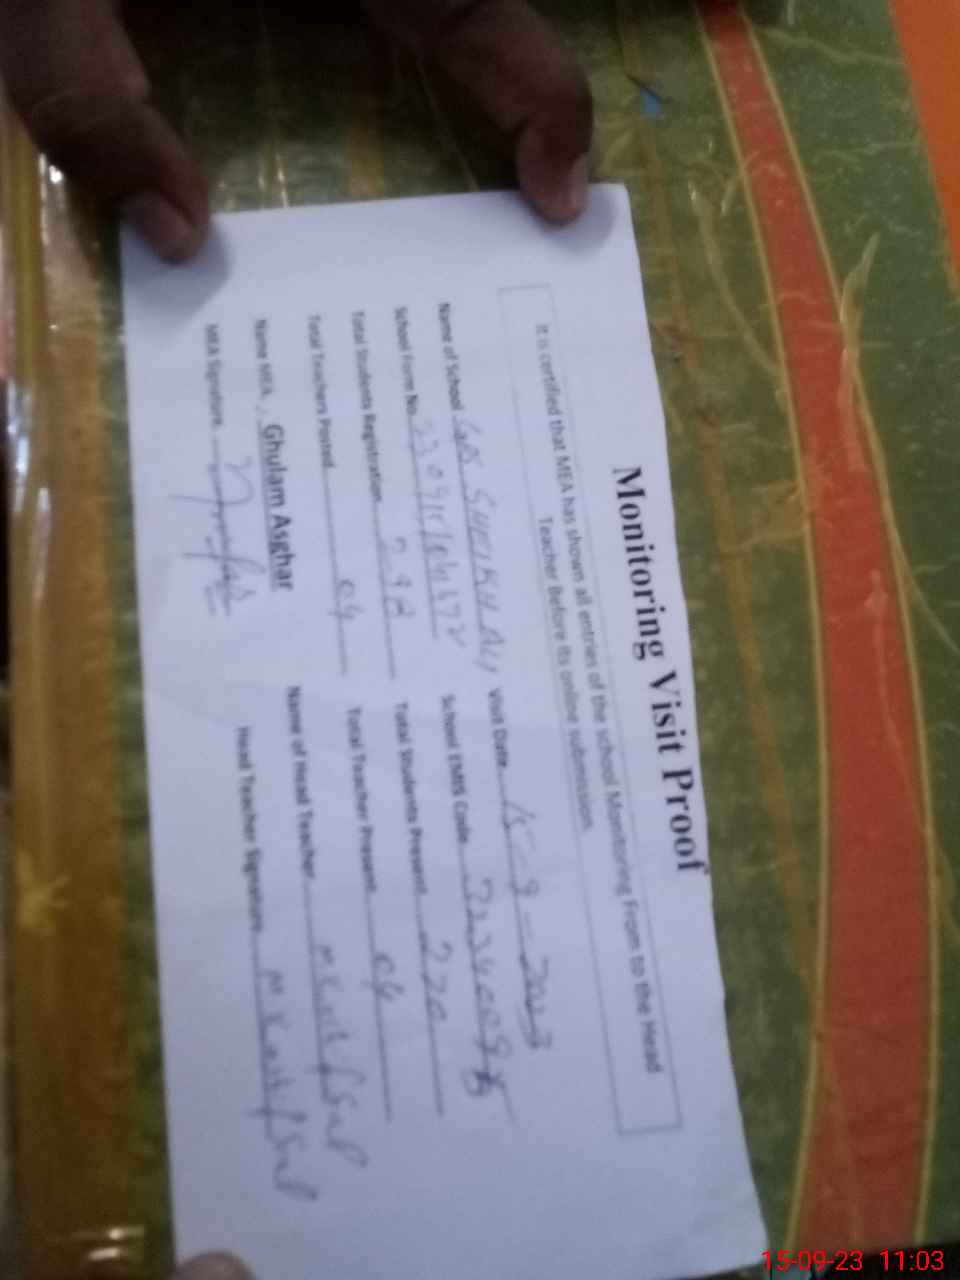 Monitoring Visit Proof
It is certified that MEA has shown all entries of the school Monitoring From to the Head
Teacher Before its online submission.
Name of School GPS SHEIKH ALI Visit Date 15-9-2023
School Form No. School EMIS Code
Total Students Registration 298 Total Students Present 220
Total Teachers Posted 04 Total Teacher Present 04
Name MEA, Ghulam Asghar Name of Head Teacher
MEA Signature Head Teacher Signature
15-09-23 11:03